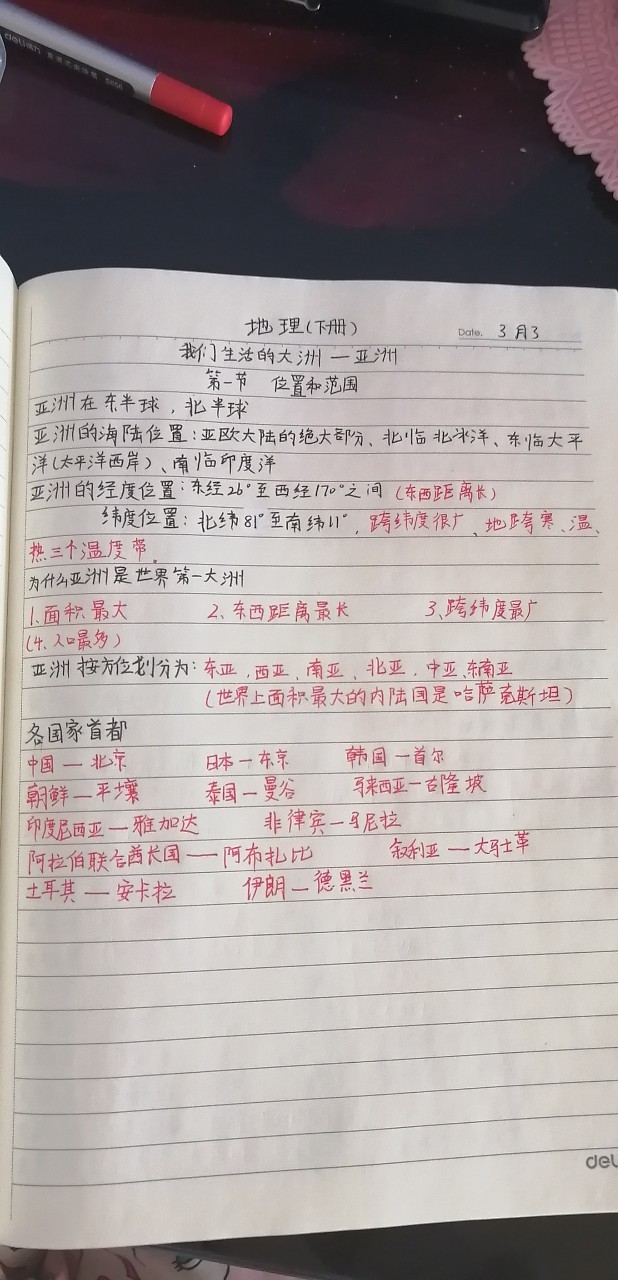 deli
5656
地理(下册)
Date. 3月3
我们生活的大洲—亚洲
第一节 位置和范围
亚洲在东半球，北半球
亚洲的海陆位置：亚欧大陆的绝大部分、北临北冰洋、东临太平
洋(太平洋西岸)、南临印度洋
亚洲的经度位置：东经26°至西经170°之间(东西距离长)
纬度位置：北纬81°至南纬11°，跨纬度很广、地跨寒、温、
热三个温度带。
为什么亚洲是世界第一大洲
1.面积最大 2、东西距离最长 3、跨纬度最广
(4、人口最多)
亚洲按方位划分为：东亚，西亚、南亚、北亚，中亚、东南亚
(世界上面积最大的内陆国是哈萨克斯坦)
各国家首都
中国—北京 日本—东京 韩国—首尔
朝鲜—平壤 泰国—曼谷 马来西亚—吉隆坡
印度尼西亚—雅加达 菲律宾—马尼拉
阿拉伯联合酋长国——阿布扎比 叙利亚—大马士革
土耳其—安卡拉 伊朗—德黑兰
del